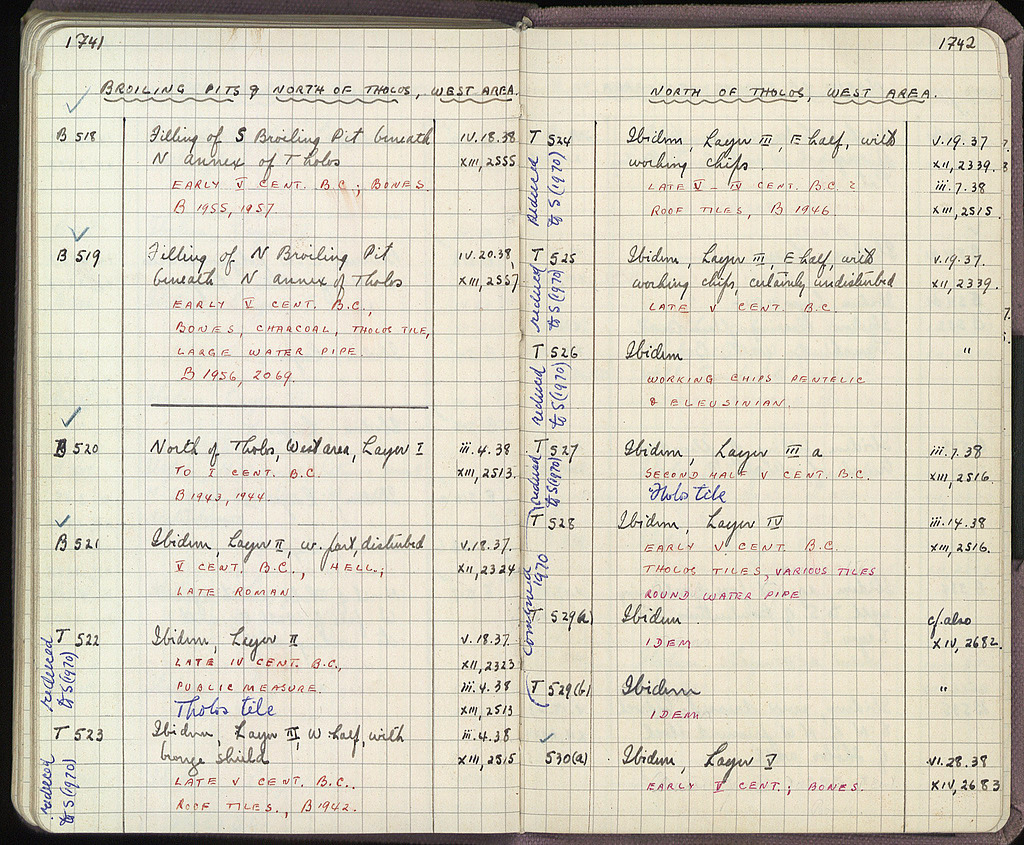 1741
BROILING PITS & NORTH OF THOLOS, WEST AREA.
B 518 Filling of S Broiling Pit beneath IV.18.38
N annex of Tholos XIII, 2555
EARLY V CENT. B.C.; BONES.
B 1955, 1957.
B 519 Filling of N Broiling Pit IV.20.38,
beneath N annex of Tholos XIII, 2557
EARLY V CENT. B.C.,
BONES, CHARCOAL, THOLOS TILE,
LARGE WATER PIPE.
B 1956, 2069.
B 520 North of Tholos, West area, Layer I iii.4.38
TO I CENT. B.C. XIII, 2513.
B 1943, 1944.
B 521 Ibidem, Layer II, w. part, disturbed V.18.37.
V CENT. B.C., HELL.; XII, 2324
LATE ROMAN.
T 522 Ibidem, Layer II V.18.37.
reduced to S (1970)
LATE IV CENT. B.C., XII, 2323
PUBLIC MEASURE. iii.4.38
Tholos tile XIII, 2513
T 523 Ibidem, Layer III, W half, with iii.4.38
reduced to S (1970)
bronze shield XIII, 2515
LATE V CENT. B.C.
ROOF TILES., B 1942.
1742
NORTH OF THOLOS, WEST AREA.
T 524 Ibidem, Layer III, E half, with V.19.37
reduced to S (1970)
working chips. XII, 2339.
LATE V – IV CENT. B.C. ? iii.7.38
ROOF TILES, B 1946 XIII, 2515
T 525 Ibidem, Layer III, E half, with V.19.37.
reduced to S (1970)
working chips, certainly undisturbed XII, 2339.
LATE V CENT. B.C.
T 526 Ibidem "
reduced to S (1970)
WORKING CHIPS PENTELIC
& ELEUSINIAN.
T 527 Ibidem, Layer III a iii.7.38
reduced to S (1970)
SECOND HALF V CENT. B.C. XIII, 2516.
Tholos tile
T 528 Ibidem, Layer IV iii.14.38
combined 1970
EARLY V CENT. B.C. XIII, 2516.
THOLOS TILES, VARIOUS TILES
ROUND WATER PIPE
T 529(a) Ibidem cf. also
IDEM XIV, 2682.
T 529(b) Ibidem "
IDEM
530(a) Ibidem, Layer V VI.28.38
EARLY V CENT.; BONES. XIV, 2683